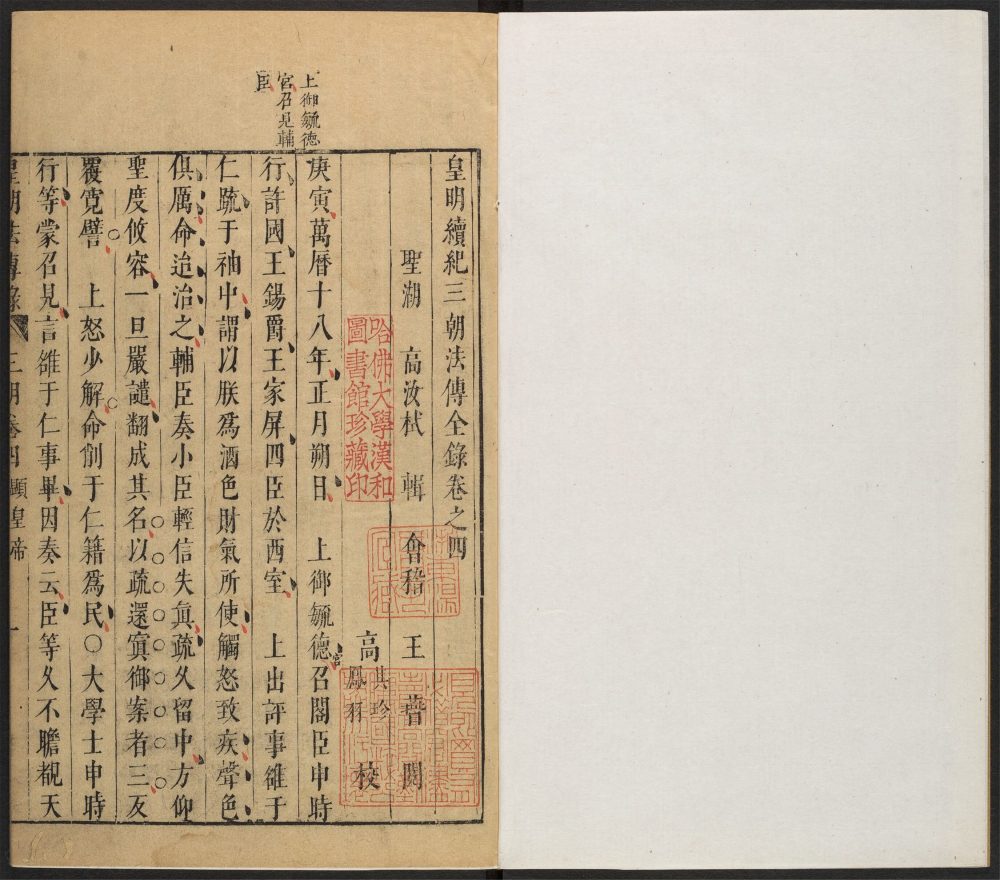 上御毓德
宮召見輔
臣
皇明續紀三朝法傳全錄卷之四
聖湖 高汝栻 輯 會稽 王 瞢 閱
高 其珍 鳳翀 校
庚寅萬曆十八年正月朔日 上御毓德宮召閣臣申時
行許國王錫爵王家屏四臣於西室 上出評事雒于
仁疏于袖中謂以朕爲酒色財氣所使觸怒致疾聲色
俱厲命迨治之輔臣奏小臣輕信失眞疏久留中方仰
聖度攸容一旦嚴譴翻成其名以疏還寘御案者三反
覆寬譬 上怒少解命削于仁籍爲民○大學士申時
行等蒙召見言雒于仁事畢因奏云臣等久不瞻覩天
皇明法傳錄 三朝卷四 顯皇帝 一
哈佛大學漢和
圖書館珍藏印